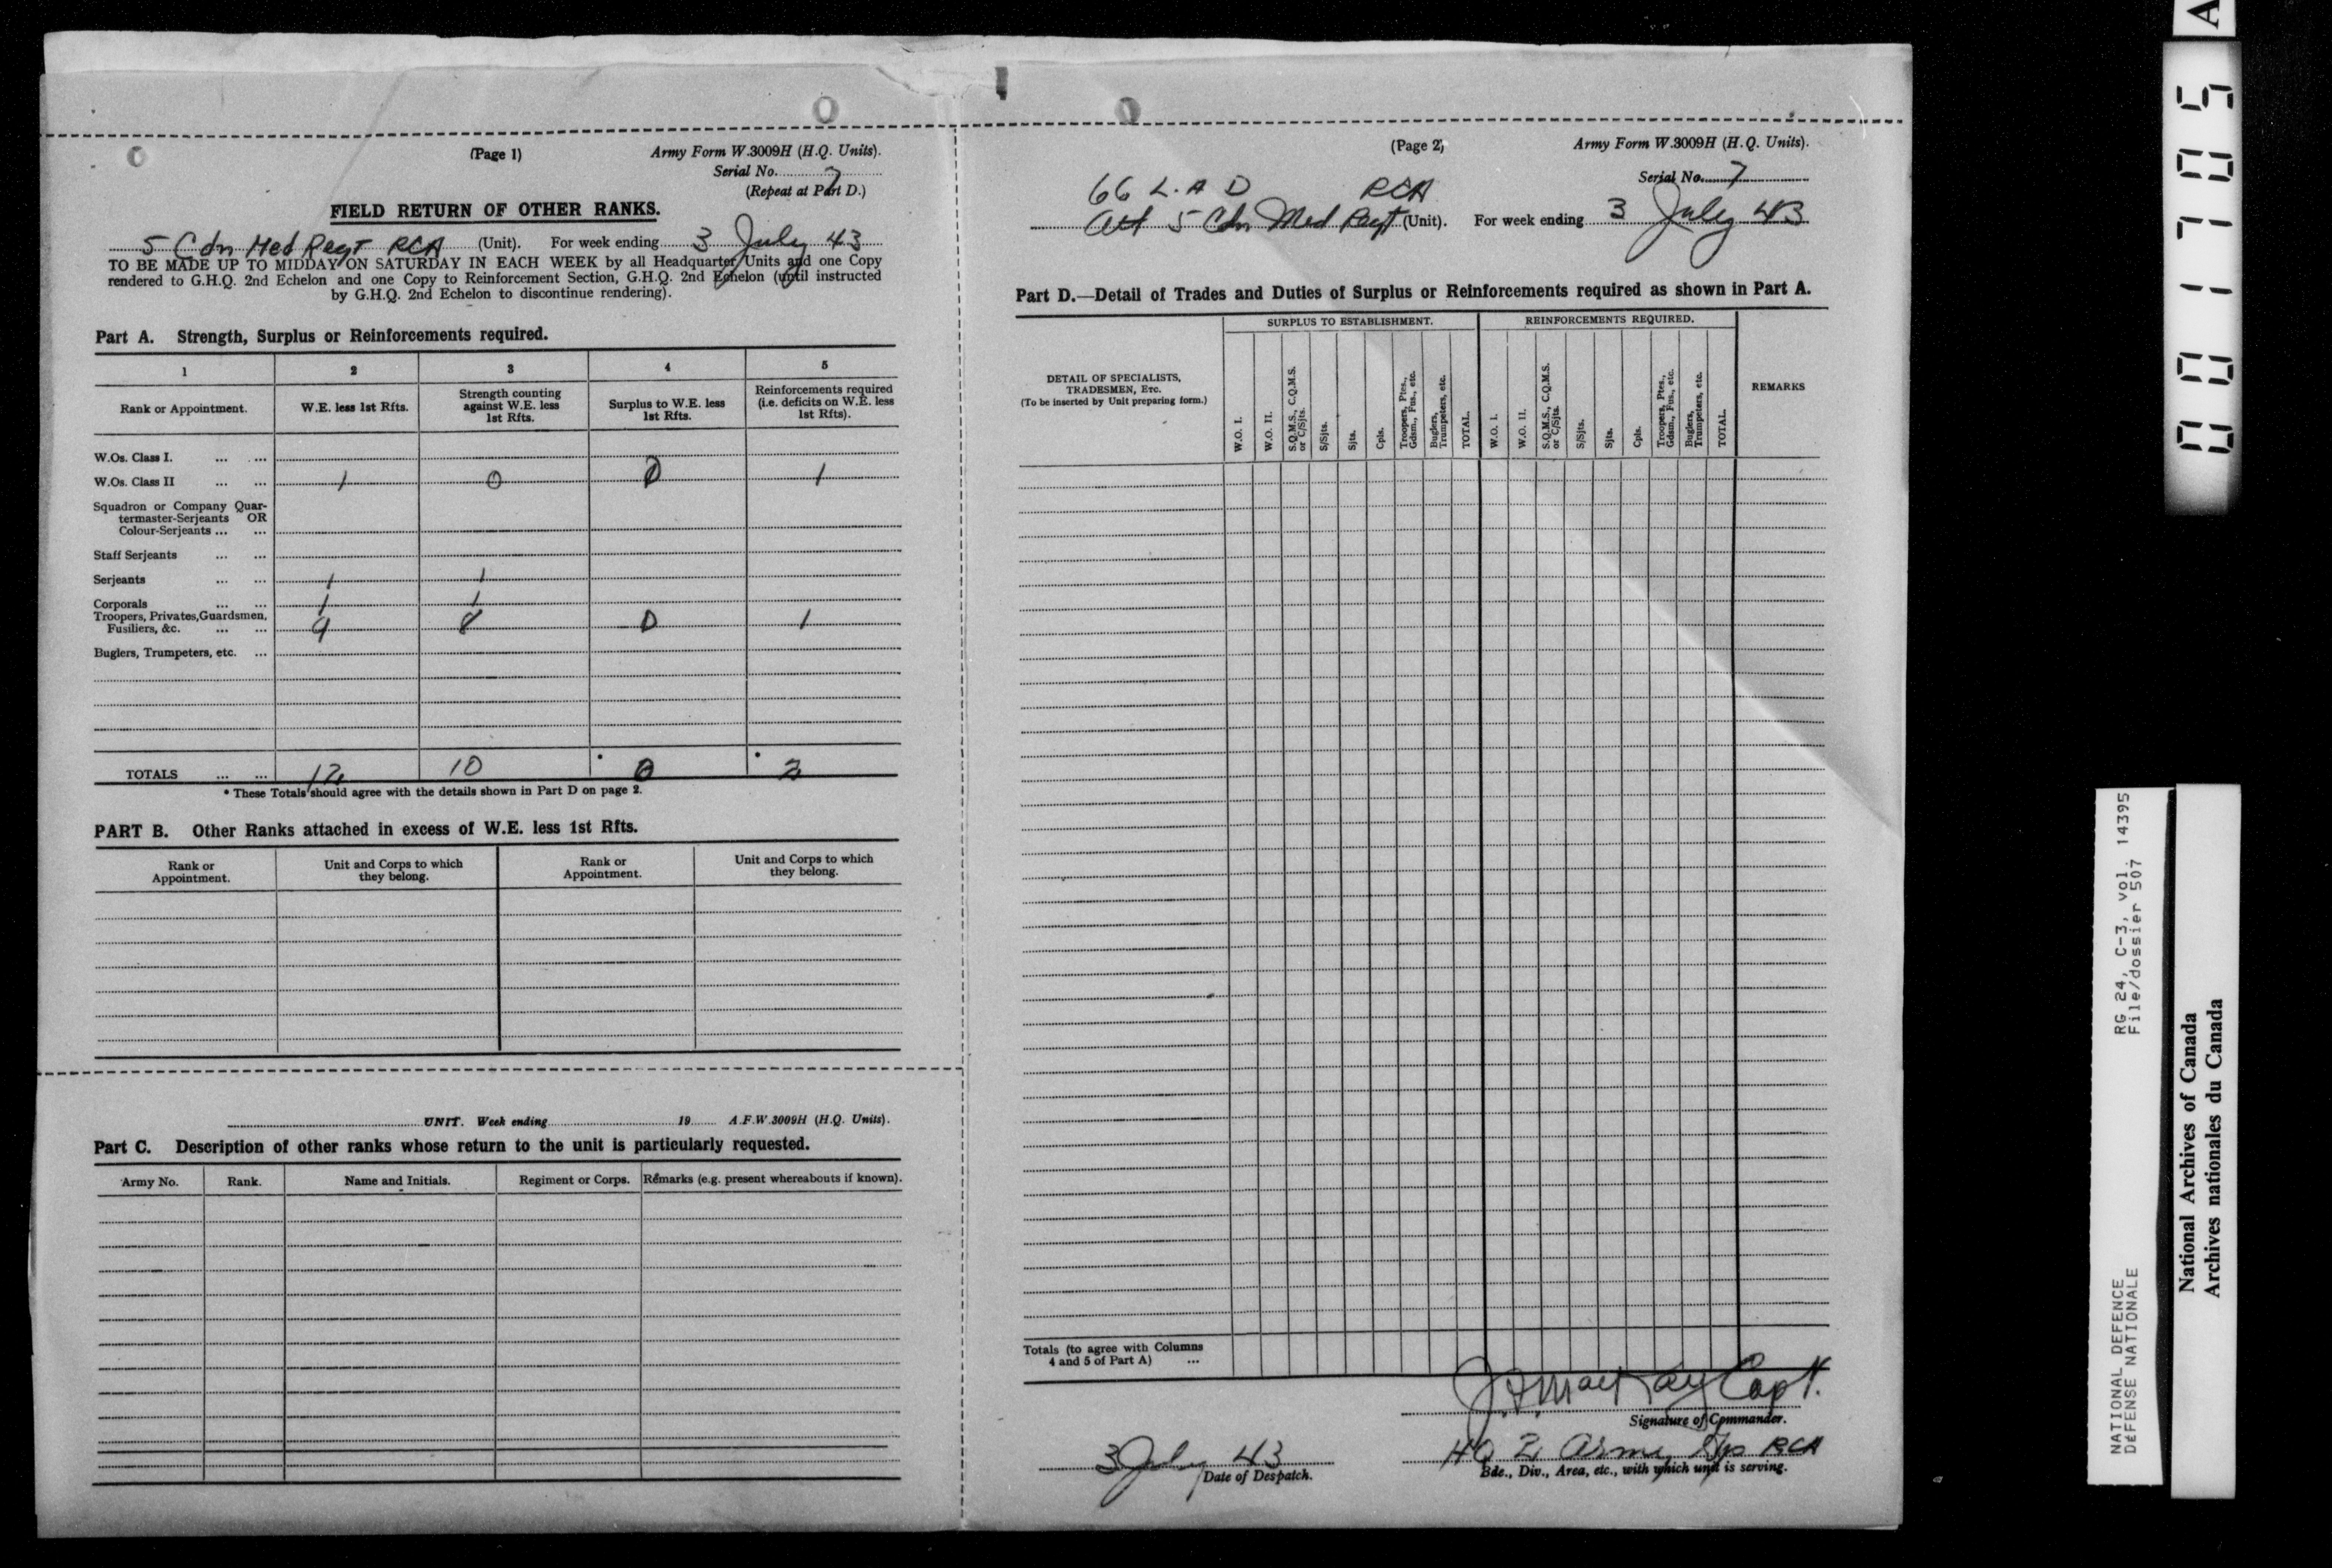 (Page 1)
Army Form W.3009H (H.Q. Units).
Serial No. 7
(Repeat at Part D.)
FIELD RETURN OF OTHER RANKS.
5 Cdn Med Regt RCA (Unit). For week ending 3 July 43
TO BE MADE UP TO MIDDAY ON SATURDAY IN EACH WEEK by all Headquarter Units and one Copy
rendered to G.H.Q. 2nd Echelon and one Copy to Reinforcement Section, G.H.Q. 2nd Echelon (until instructed
by G.H.Q. 2nd Echelon to discontinue rendering).
Part A. Strength, Surplus or Reinforcements required.
1 2 3 4 5
Rank or Appointment.
W.E. less 1st Rfts.
Strength counting
against W.E. less
1st Rfts.
Surplus to W.E. less
1st Rfts.
Reinforcements required
(i.e. deficits on W.E. less
1st Rfts).
W.Os. Class I. ... ...
W.Os. Class II ... ... 1 0 0 1
Squadron or Company Quar-
termaster-Serjeants OR
Colour-Serjeants ... ...
Staff Serjeants ... ...
Serjeants ... ... 1 1
Corporals ... ... 1 1
Troopers, Privates, Guardsmen,
Fusiliers, &c. ... ... 9 8 0 1
Buglers, Trumpeters, etc. ...
TOTALS ... ... 12 10 * 0 * 2
* These Totals should agree with the details shown in Part D on page 2.
PART B. Other Ranks attached in excess of W.E. less 1st Rfts.
Rank or
Appointment.
Unit and Corps to which
they belong.
Rank or
Appointment.
Unit and Corps to which
they belong.
UNIT. Week ending 19 A.F.W.3009H (H.Q. Units).
Part C. Description of other ranks whose return to the unit is particularly requested.
Army No. Rank. Name and Initials. Regiment or Corps. Remarks (e.g. present whereabouts if known).
(Page 2)
Army Form W.3009H (H.Q. Units).
Serial No. 7
66 L.A D RCA
Att 5 Cdn Med Regt (Unit). For week ending 3 July 43
Part D.—Detail of Trades and Duties of Surplus or Reinforcements required as shown in Part A.
DETAIL OF SPECIALISTS,
TRADESMEN, ETC.
(To be inserted by Unit preparing form.)
SURPLUS TO ESTABLISHMENT.
W.O. I.
W.O. II.
S.Q.M.S., C.Q.M.S.
or C/Sjts.
S/Sjts.
Sjts.
Cpls.
Troopers, Ptes.,
Gdsm., Fus., etc.
Buglers,
Trumpeters, etc.
TOTAL.
REINFORCEMENTS REQUIRED.
W.O. I.
W.O. II.
S.Q.M.S., C.Q.M.S.
or C/Sjts.
S/Sjts.
Sjts.
Cpls.
Troopers, Ptes.,
Gdsm., Fus., etc.
Buglers,
Trumpeters, etc.
TOTAL.
REMARKS
Totals (to agree with Columns
4 and 5 of Part A) ...
MacKay Capt.
Signature of Commander.
3 July 43
Date of Despatch.
Army RCA
Bde., Div., Area, etc., with which unit is serving.
A
001705
RG 24, C-3, vol. 14395
File/dossier 507
NATIONAL DEFENCE
DÉFENSE NATIONALE
National Archives of Canada
Archives nationales du Canada